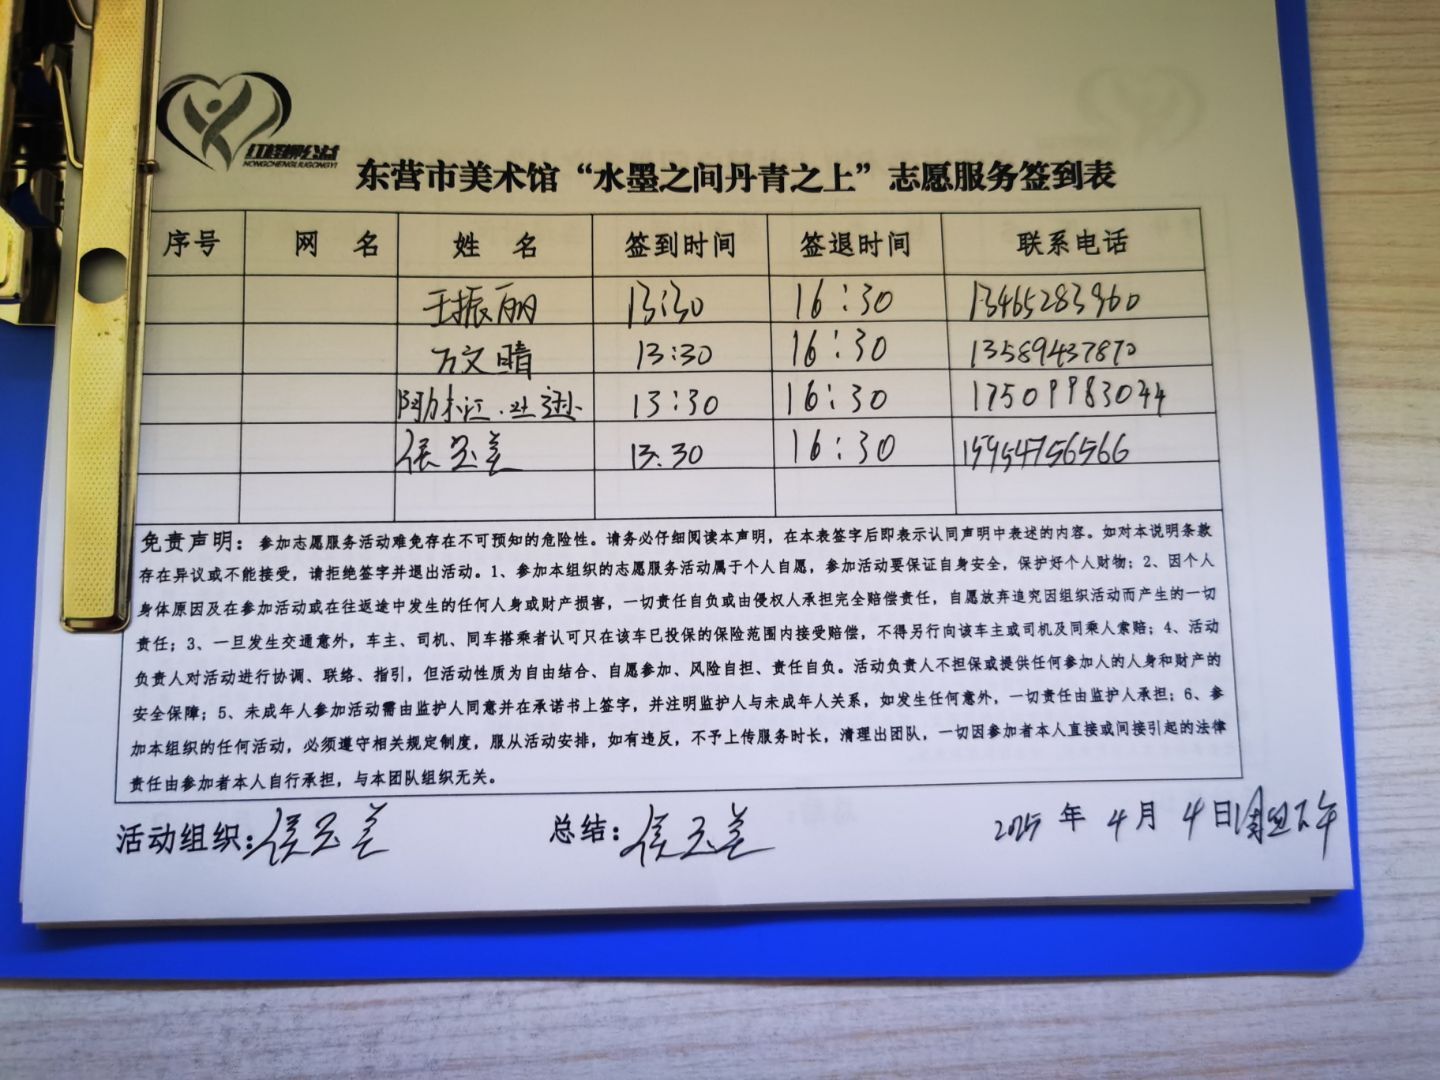 红柽柳公益
HONGCHENGLIUGONGYI
东营市美术馆“水墨之间丹青之上”志愿服务签到表
序号 网 名 姓 名 签到时间 签退时间 联系电话
王振丽 13:30 16:30 13465283960
万文晴 13:30 16:30 13589437870
13:30 16:30 17509983044
侯玉美 13:30 16:30 15954756566
免责声明：参加志愿服务活动难免存在不可预知的危险性。请务必仔细阅读本声明，在本表签字后即表示认同声明中表述的内容。如对本说明条款
存在异议或不能接受，请拒绝签字并退出活动。1、参加本组织的志愿服务活动属于个人自愿，参加活动要保证自身安全，保护好个人财物；2、因个人
身体原因及在参加活动或在往返途中发生的任何人身或财产损害，一切责任自负或由侵权人承担完全赔偿责任，自愿放弃追究因组织活动而产生的一切
责任；3、一旦发生交通意外，车主、司机、同车搭乘者认可只在该车已投保的保险范围内接受赔偿，不得另行向该车主或司机及同乘人索赔；4、活动
负责人对活动进行协调、联络、指引，但活动性质为自由结合、自愿参加、风险自担、责任自负。活动负责人不担保或提供任何参加人的人身和财产的
安全保障；5、未成年人参加活动需由监护人同意并在承诺书上签字，并注明监护人与未成年人关系，如发生任何意外，一切责任由监护人承担；6、参
加本组织的任何活动，必须遵守相关规定制度，服从活动安排，如有违反，不予上传服务时长，清理出团队，一切因参加者本人直接或间接引起的法律
责任由参加者本人自行承担，与本团队组织无关。
活动组织：侯玉美 总结：侯玉美 2025 年 4 月 4 日 周五下午